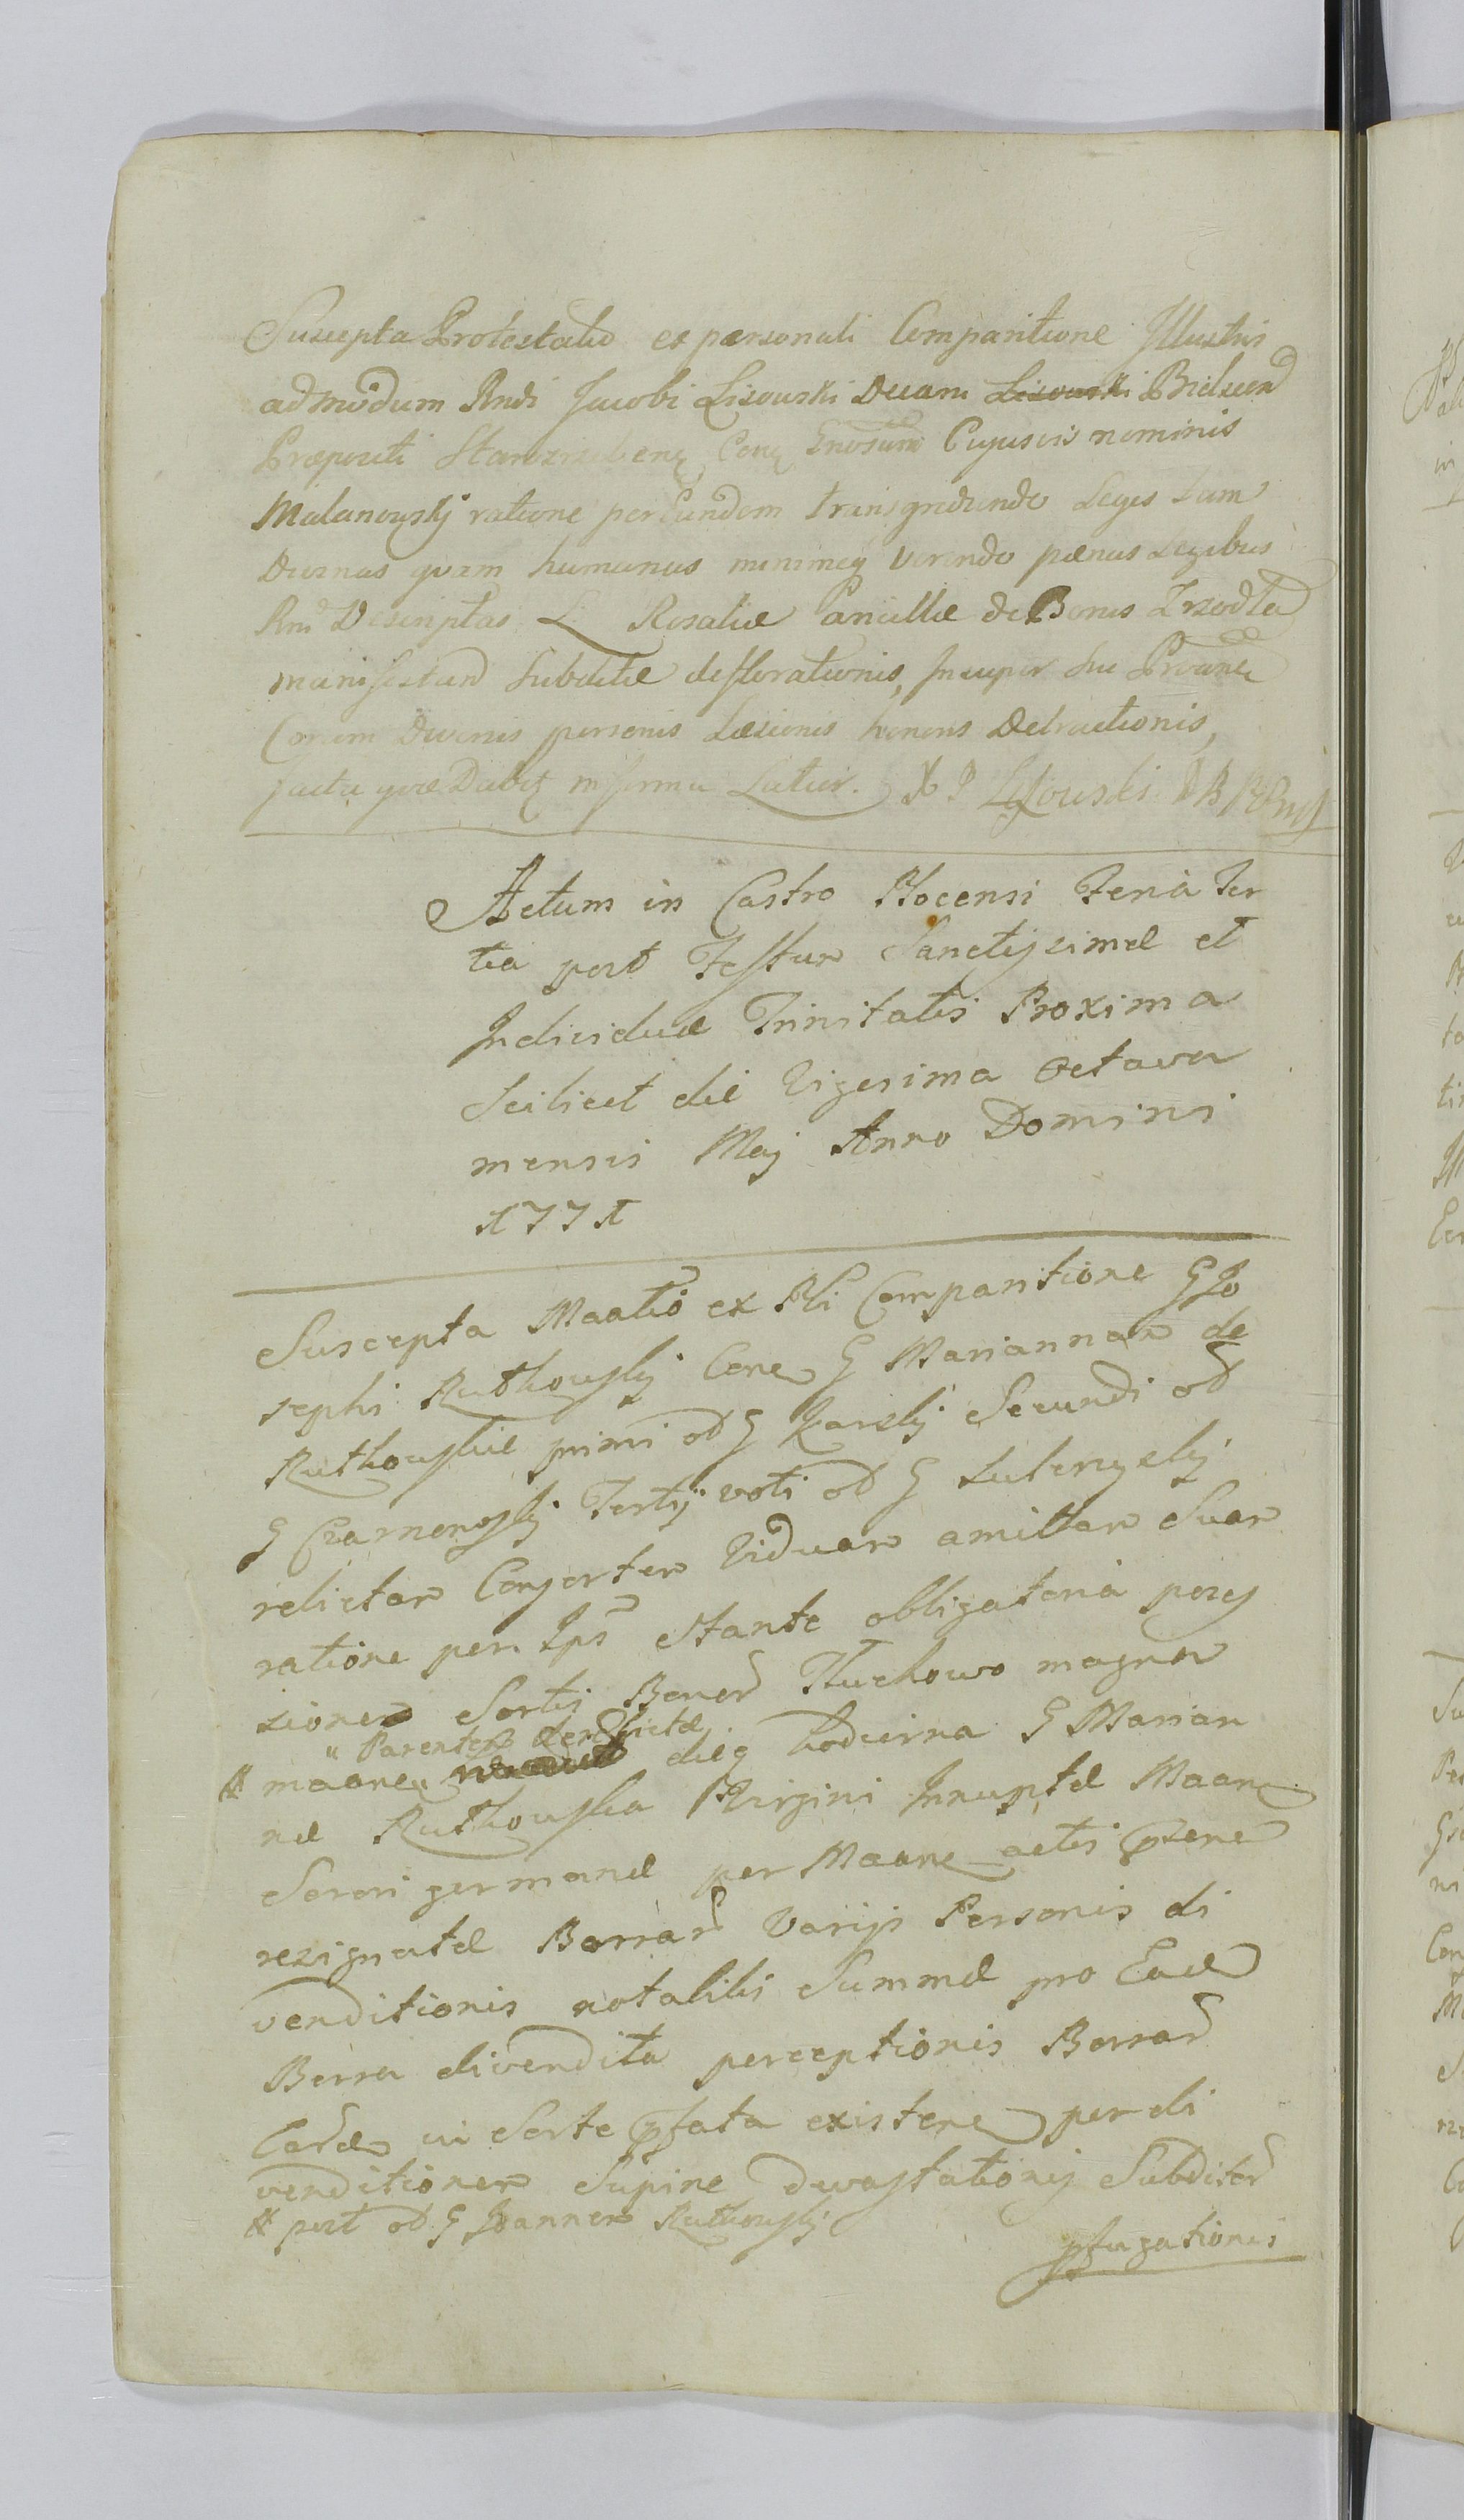 Suscepta Protestatio ex personali Comparitione Illustris
admodum Rndi Jacobi Lisowski Decani Lisowski Bielscen
Præpositi Cong Gnosum Cujusvis nominis
Malanowskj ratione per Eundem transgrediendo Leges tam
Divinas quam humanas minimeq verendo pænas Legibus
Descriptas L Rosaliæ ancillæ de Bonis
manifestan Subditæ deflorationis, Insuper sue
Coram Diversis personis Læsionis honoris Detractionis,
facta quæ Dabitq in forma Latior. X J Lisowski DB
Actum in Castro Plocensi Feria Ter
tia post Festum Sanctissimæ et
Individuæ Trinitatis Proxima
Scilicet die Vigesima Octava
mensis Maj Anno Domini
1771
Suscepta Maatio ex Pli Comparitione G Jo
sephi Rutkowskj Cone G Mariannam de
Rutkowskie primi od G Karskj Secundi od
G Czarnowskj Tertij voti od G
relictam Consortem Viduam amittam Suam
ratione per Ips Stante obligatoria poses
sionem Sortis Bonor Tluchowo magna
# maane " Parentes derelictæ dieq hodierna G Marian
næ Rutkowska Virgini Innuptæ Maane
Sorori germanæ per Maane actis
rezignatæ Borrar Varijs Personis di
venditionis notabilis Summæ pro Eade
Borra divendita perceptionis Borrar
in Sorte pfata existene per di
venditionem Supine devastationis Subditor
# post od G Joannem Rutkowskj
pfugationis